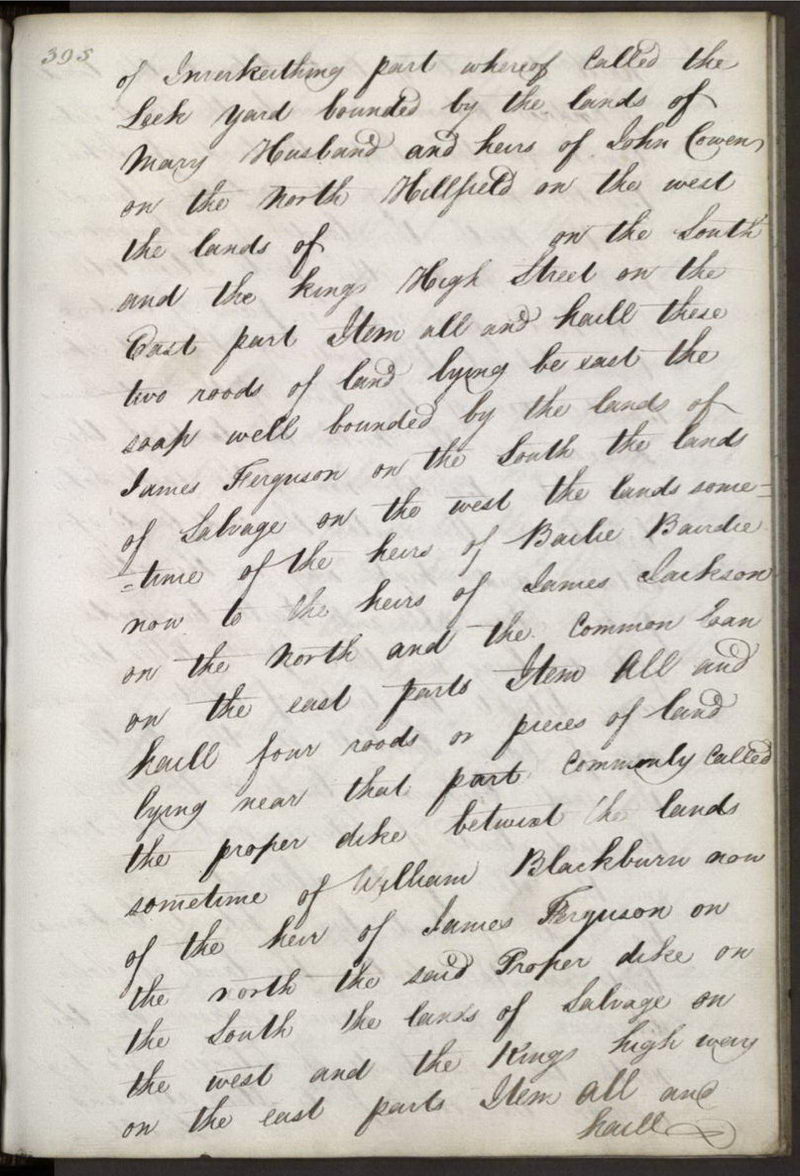 395
of Inverkeithing part whereof Called the
Leek Yard bounded by the lands of
Mary Husband and heirs of John Cowen
on the North Hillfield on the west
the lands of on the South
and the kings High Street on the
East part Item all and haill these
two roods of land lying be east the
soap well bounded by the lands of
James Ferguson on the South the lands
of Salvage on the west the lands some=
=time of the heirs of Bailie Bairdie
now to the heirs of James Jackson
on the North and the Common Loan
on the east parts Item All and
haill four roods or pieces of land
lying near that part Commonly Called
the proper dike betwixt the lands
sometime of William Blackburn now
of the heir of James Ferguson on
the north the said Proper dike on
the South the lands of Salvage on
the west and the Kings high way
on the east parts Item all and
haill